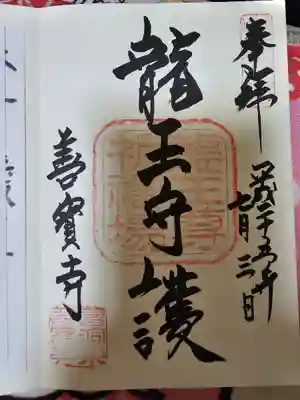 奉拜
平成二十五年
七月三日
龍王守護
善寳寺